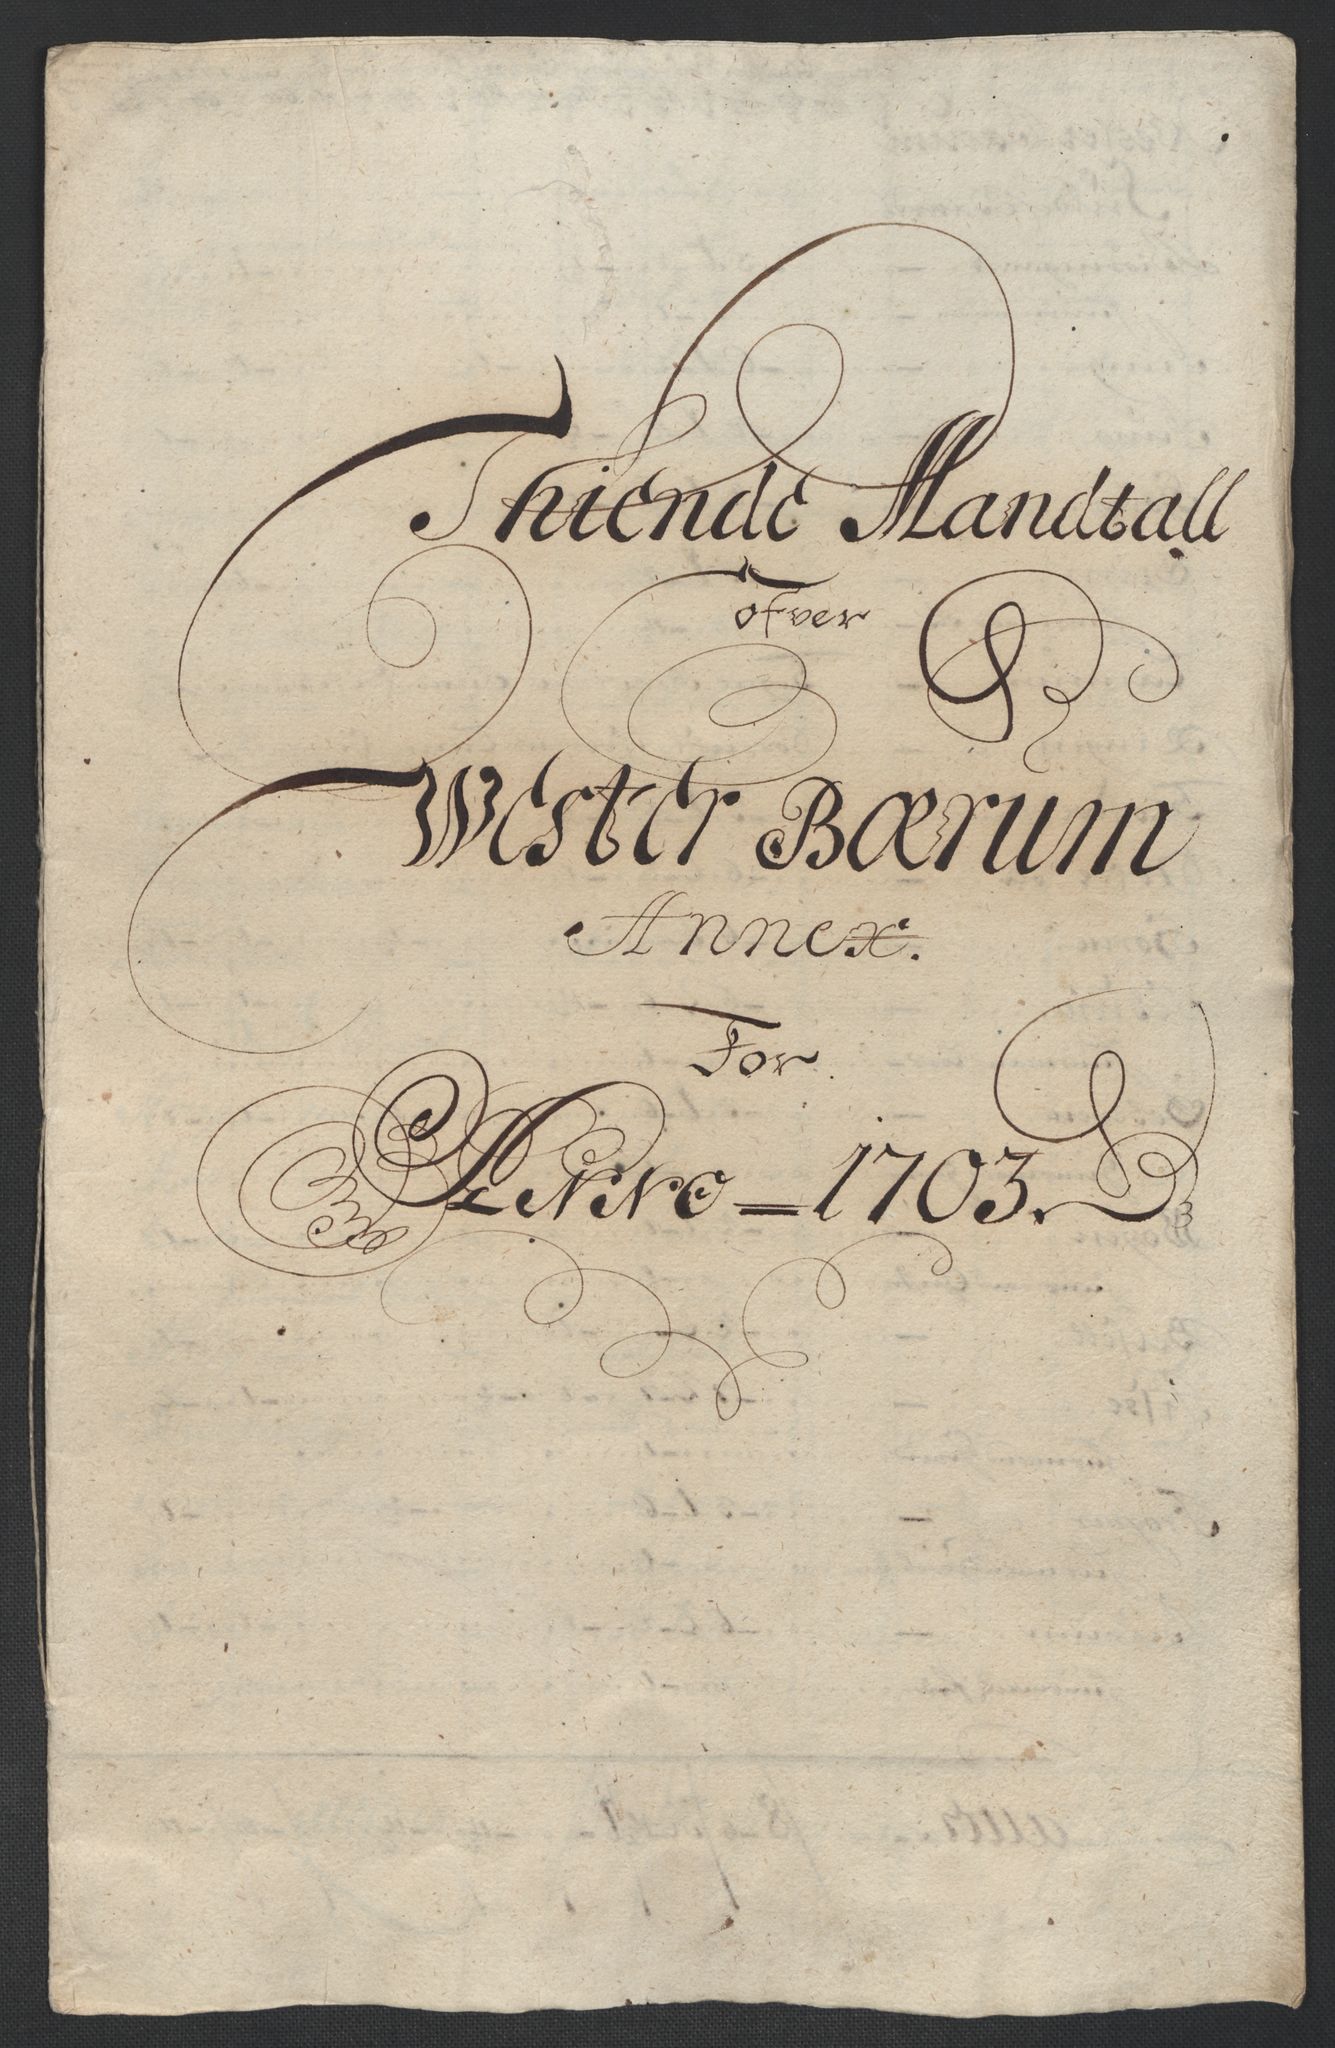 Thiende Mandtall
ofver
Wester Bærum
Annex.
For
Anno = 1703.